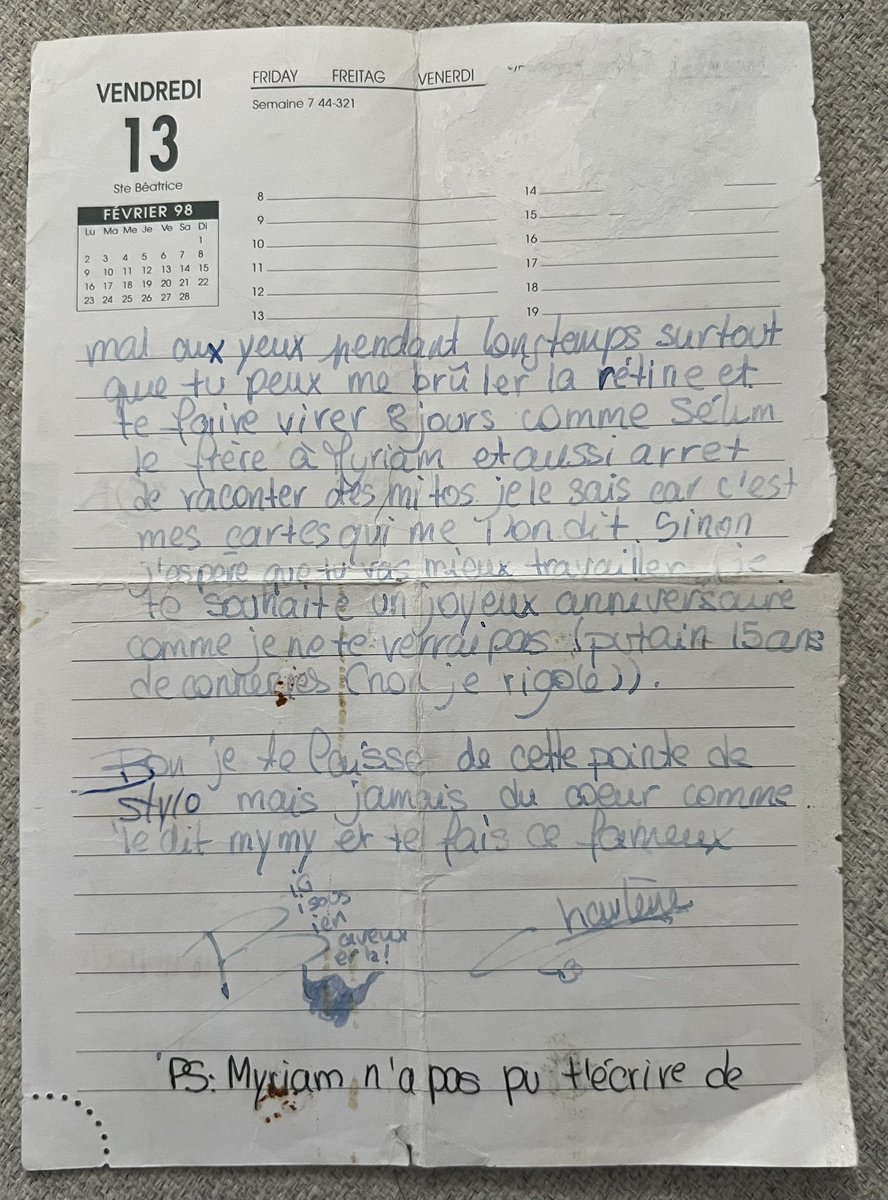 VENDREDI
13
Ste Béatrice
FÉVRIER 98
Lu Ma Me Je Ve Sa Di
1
2 3 4 5 6 7 8
9 10 11 12 13 14 15
16 17 18 19 20 21 22
23 24 25 26 27 28
FRIDAY FREITAG VENERDI
Semaine 7 44-321
8
9
10
11
12
13
14
15
16
17
18
19
mal aux yeux pendant longtemps surtout
que tu peux me brûler la rétine et
te faire virer 8 jours comme Sélim
le frère à Myriam et aussi arret
de raconter des mitos je le sais car c'est
mes cartes qui me l'on dit. Sinon
j'espère que tu vas mieux travailler je
te souhaite un joyeux anniversaire
comme je ne te verrai pas (putain 15 ans
de conneries (non je rigole)).
Bon je te laisse de cette pointe de
stylo mais jamais du coeur comme
le dit mymy et te fais ce fameux
PS: Myriam n'a pas pu t'écrire de